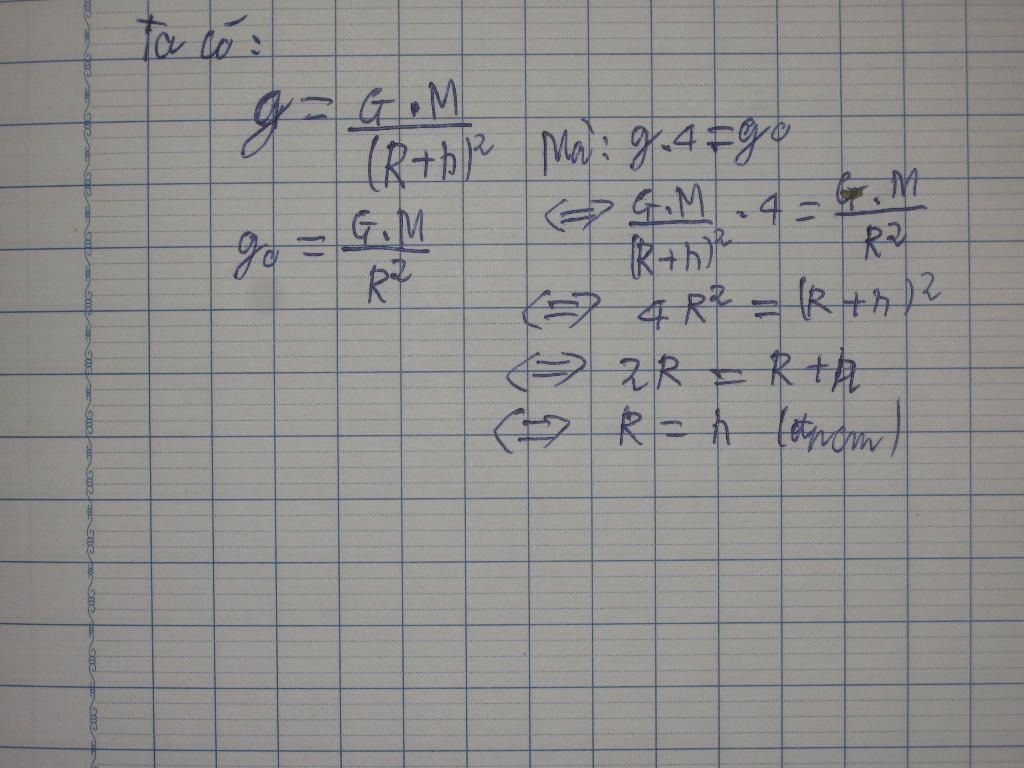 Ta có:
g = G.M / (R+h)²
g₀ = G.M / R²
Mà: g.4 = g₀
<=> G.M / (R+h)² . 4 = G.M / R²
<=> 4R² = (R+h)²
<=> 2R = R+h
<=> R = h (đpcm)